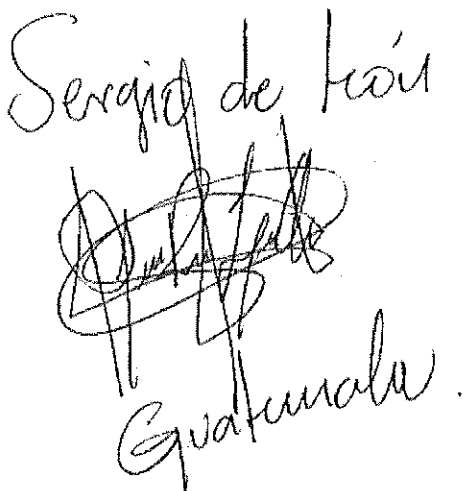 Sergio de León
Guatemala.